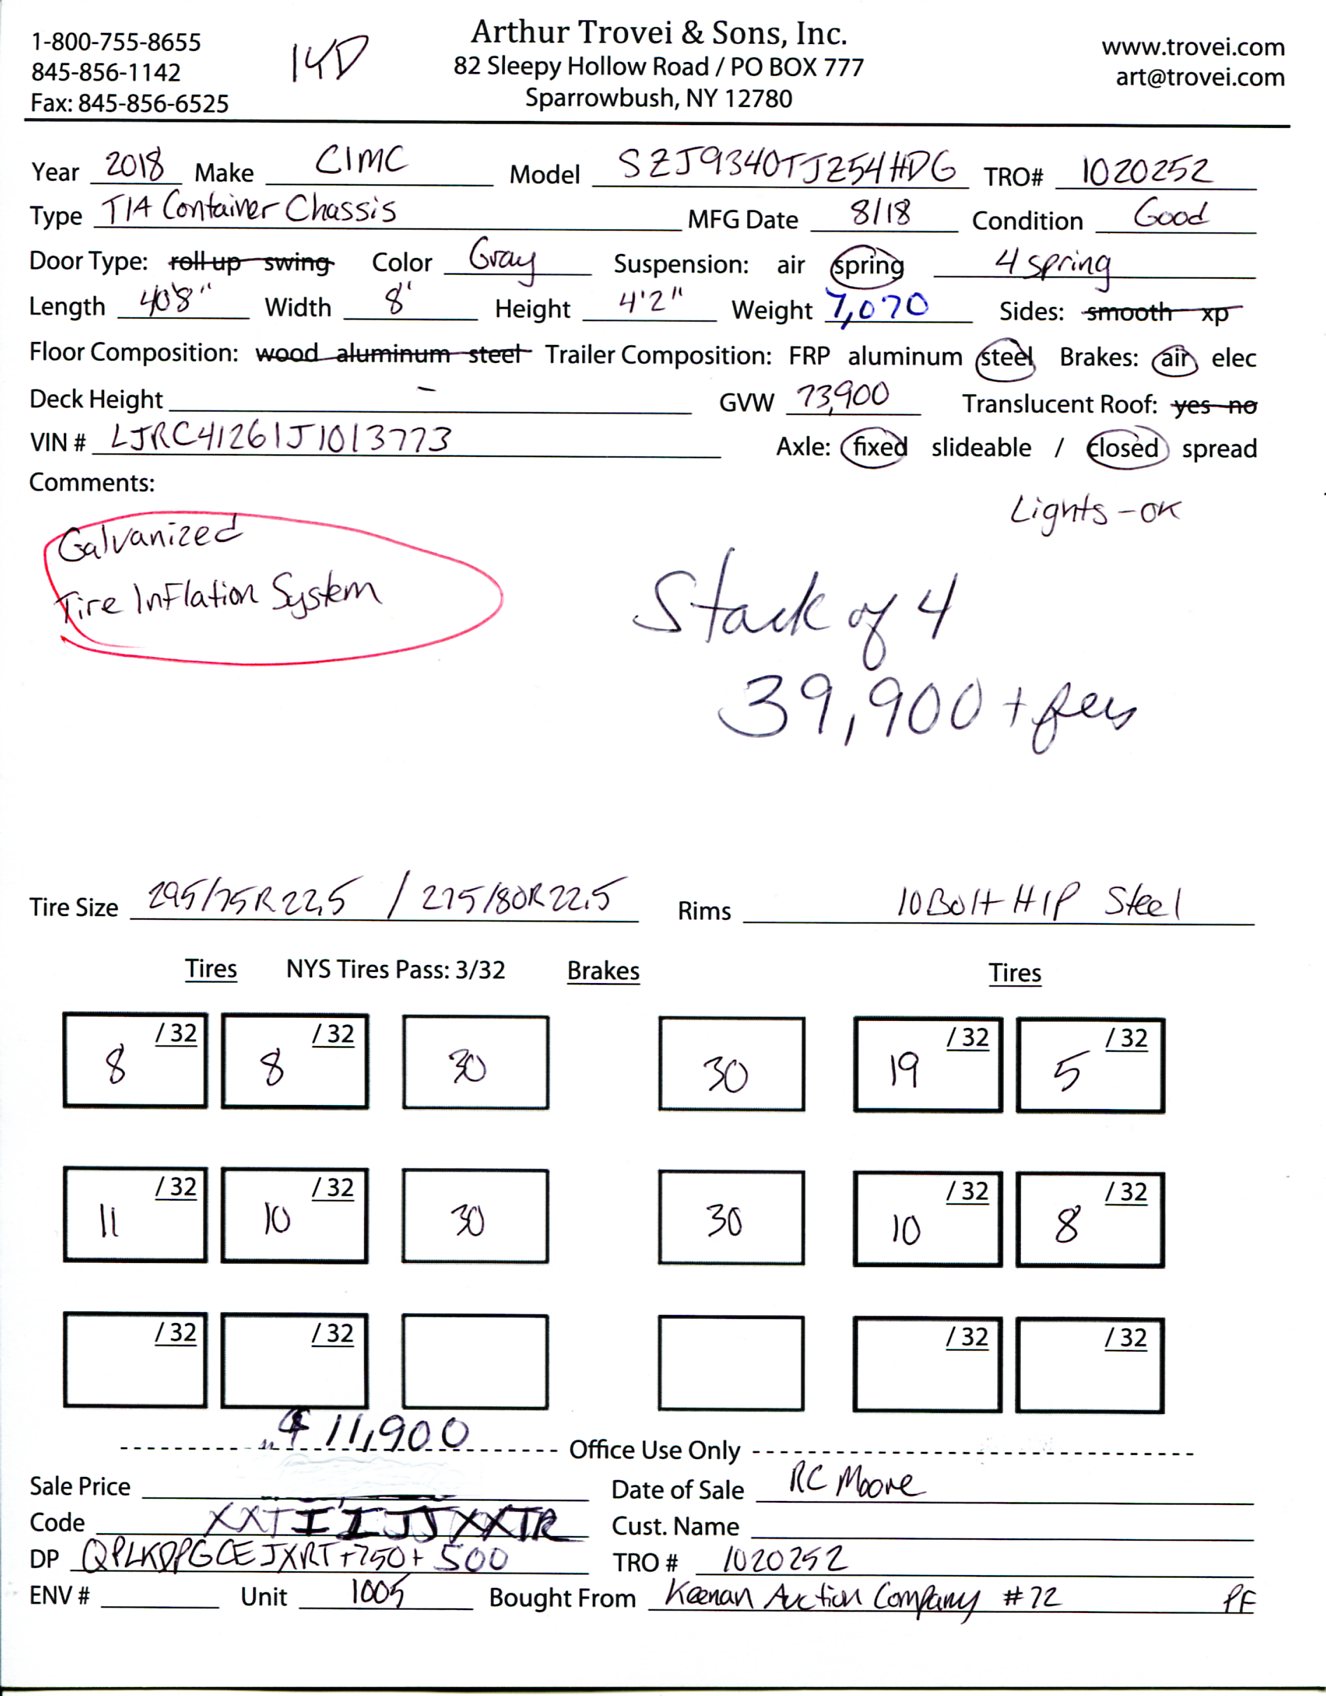 1-800-755-8655
845-856-1142
Fax: 845-856-6525
14D
Arthur Trovei & Sons, Inc.
82 Sleepy Hollow Road / PO BOX 777
Sparrowbush, NY 12780
www.trovei.com
art@trovei.com
Year 2018 Make CIMC Model SZJ9340TJZ54HDG TRO# 1020252
Type T/A Container Chassis MFG Date 8/18 Condition Good
Door Type: roll up swing Color Gray Suspension: air spring 4 spring
Length 40'8" Width 8' Height 4'2" Weight 7,070 Sides: smooth xp
Floor Composition: wood aluminum steel Trailer Composition: FRP aluminum steel Brakes: air elec
Deck Height - GVW 73,900 Translucent Roof: yes no
VIN # LJRC41261J1013773 Axle: fixed slideable / closed spread
Comments:
Lights - OK
Galvanized
Tire Inflation System
Stack of 4
39,900 + fees
Tire Size 295/75R22.5 / 275/80R22.5 Rims 10 Bolt H/P Steel
Tires NYS Tires Pass: 3/32 Brakes Tires
8 /32 8 /32 30 30 19 /32 5 /32
11 /32 10 /32 30 30 10 /32 8 /32
/32 /32 /32 /32
$11,900
Office Use Only
Sale Price Date of Sale RC Moore
Code XXTIIJJXXTR Cust. Name
DP QPLKDPGCEJXRT+750+500 TRO # 1020252
ENV # Unit 1005 Bought From Keenan Auction Company #72 PF